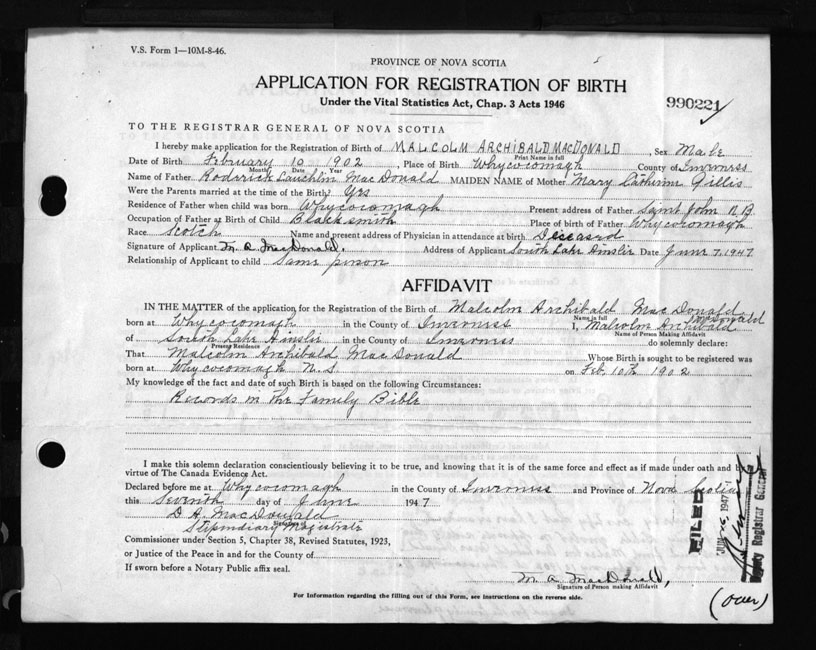 V.S. Form 1—10M-8-46.
PROVINCE OF NOVA SCOTIA
APPLICATION FOR REGISTRATION OF BIRTH
Under the Vital Statistics Act, Chap. 3 Acts 1946
990221
TO THE REGISTRAR GENERAL OF NOVA SCOTIA
I hereby make application for the Registration of Birth of MALCOLM ARCHIBALD MACDONALD, Sex Male
Print Name in full
Date of Birth February 10 1902, Place of Birth Whycocomagh County of Inverness
Month Date Year
Name of Father Roderrick Lauchlin MacDonald MAIDEN NAME of Mother Mary Catherine Gillis
Were the Parents married at time of the Birth? Yes
Residence of Father when child was born Whycocomagh Present address of Father Saint John N B
Occupation of Father at Birth of Child Blacksmith Place of birth of Father Whycocomagh
Race Scotch Name and present address of Physician in attendance at birth Deceased
Signature of Applicant M. A. MacDonald. Address of Applicant South Lake Ainslie Date June 7, 1947
Relationship of Applicant to child Same person
AFFIDAVIT
IN THE MATTER of the application for the Registration of the Birth of Malcolm Archibald MacDonald
Name in full
born at Whycocomagh in the County of Inverness I, Malcolm Archibald MacDonald
Name of Person Making Affidavit
of South Lake Ainslie in the County of Inverness do solemnly declare:
Present Residence
That Malcolm Archibald MacDonald Whose Birth is sought to be registered was
born at Whycocomagh N.S. on Feb. 10th 1902
My knowledge of the fact and date of such Birth is based on the following Circumstances:
Records in the Family Bible
I make this solemn declaration conscientiously believing it to be true, and knowing that it is of the same force and effect as if made under oath and by
virtue of The Canada Evidence Act.
Declared before me at Whycocomagh in the County of Inverness and Province of Nova Scotia
this Seventh day of June 1947
D A. MacDonald
Stipendiary Magistrate
Signature of
Commissioner under Section 5, Chapter 38, Revised Statutes, 1923,
or Justice of the Peace in and for the County of
If sworn before a Notary Public affix seal.
M. A. MacDonald,
Signature of Person making Affidavit
For Information regarding the filling out of this Form, see instructions on the reverse side.
(over)
FILED
1947
Deputy Registrar General